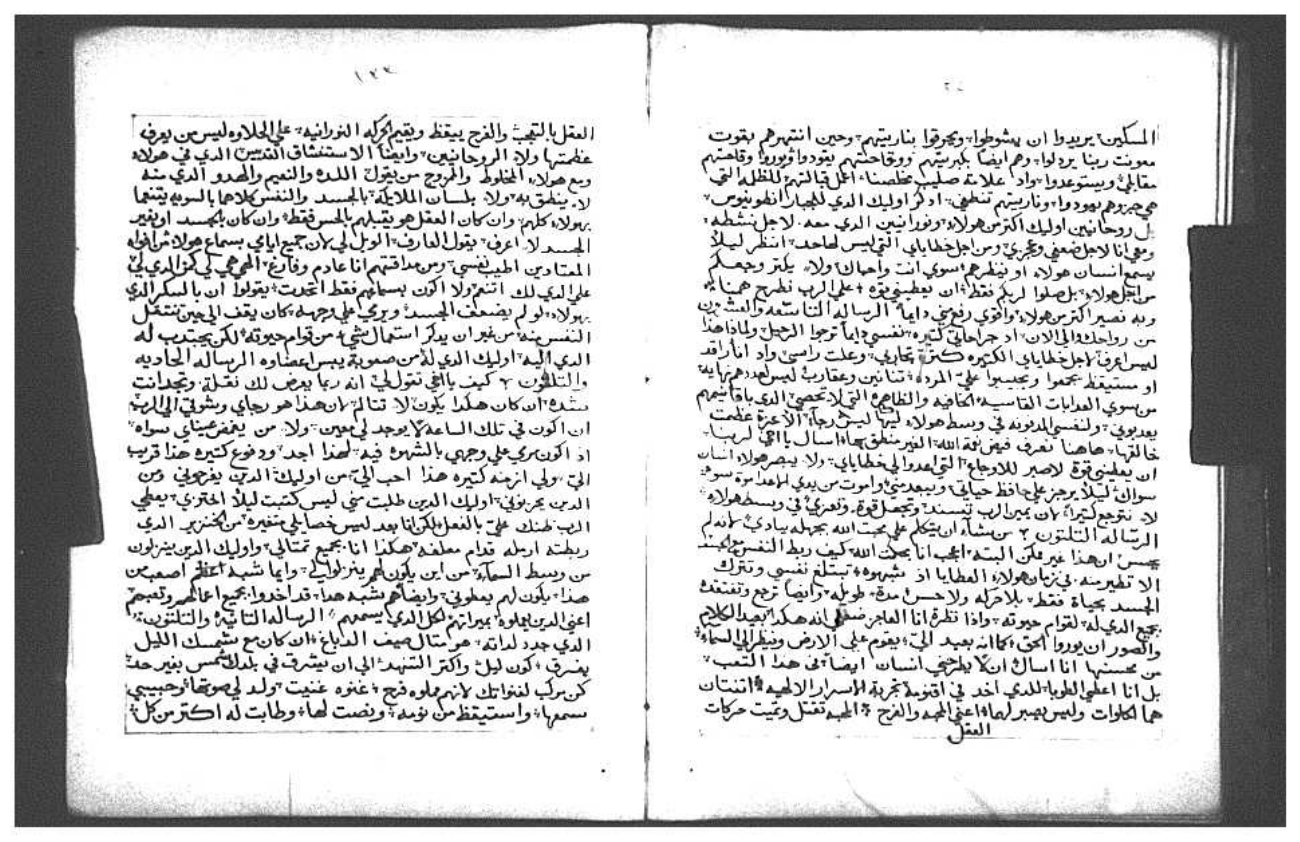 المسكين يريدوا ان يشوطوا ويحرقوا بناريتهم وحين انتهرهم بقوت
معونت ربنا يردلوا وهم ايضا بكبريتهم ووقاحتهم يقودوا ويوروا وقاحتهم
مقابلي ويستوعدوا واد علامة صليب مخلصنا اعمل قبالتهم للظلمه التي
هي جزوهم يهودوا وناريتهم تنطفي ادكر اوليك الدي للجبار انطونيوس
روحانيين اوليك اكتر من هولاء ونورانيين الدي معه لاجل نشطه
ومعي انا لاجل ضعفي وعجزي ومن اجل خطاياي التي ليس لها حد انظر ليلا
يسمع انسان هولاء او ينظرهم سوي انت واحماك ولا يكتر وجعكم
من اجل هولاء بل صلوا لربكم فقط ان يعطيني قوه علي الرب نطرح همنا
وبه نصير اكتر من هولاء واقوي رفع مني دايما الرساله التاسعه والعشرون
من رواحك والي الان اد جراحاتي كتيره نفسي دايما ترجوا الرحيل ولمادا هدا
ليس اعرف لاجل خطاياي الكتيره تجاربي وعلت راسي واد انا راقد
او مستيقظ يجتمعوا ويجيبوا علي المرده تنانين وعقارب ليس لعددهم نهايه
من سوي العدابات القاسيه الخافيه والظاهره التي لا تحصي الدي
يعدبوني ولنفسي المدبونه في وسط هولاء ليها ليس رجاء الاعزة عظمت
خالقها هاهنا نعرف فيض نعمة الله الغير منطق بها اسال يا اخي لربنا
ان يعطيني قوة لاصبر للاوجاع التي اعدوا لي خطاياي ولا يبصر هولاء انسان
سواك ليلا يرجز علي حافظ حياتي ويبعد مني واموت من يدي الاعدا موة سوء
لا تتوجع كتيرا لان يمين الرب تيسند وتجعل قوة وتعزي في وسط هولاء
الرساله التلتون من يشاء ان يتكلم علي محبت الله بجهله يبادي لانه لم
يحسن ان هدا غير ممكن البته اعجب انا بحكمت الله كيف ربط النفس مع الجسد
الا تطير منه في زمان هولاء العطايا اد بشهوه تبتلع نفسي وتترك
الجسد بحياة فقط بلا حركه ولا حس مدة طويله وايضا ترجع وتفتقد
جميع الدي له لقوام حيوته وادا نظرة انا العاجز ضعفي انه هكدا بعيد الكلام
والصور ان يوروا الحق كما انه بعيد الي يقوم علي الارض وينظر الي السماء
من محسنها انا اسال ان لا يطرحني انسان ايضا في هدا التعب
بل انا اعطي الطوبا للدي اخد في اقنومه تجربة الاسرار الالهيه اتنتان
هما الحلوات وليس يصبر لهما اعني المحبه والفرح المحبه تقتل وتميت حركات
العقل
١٣٣
العقل بالتعجب والفرح ييقظ ويقيم الحركه النورانيه علي الحلاوه ليس من يعرف
عظمتها ولا الروحانيين وايضا الاستنشاق القديس الدي في هولاء
ومع هولاء المخلوط والممزوج من يقول اللده والنعيم والهدو الدي منه
لا ينطق به ولا بلسان الملايكه بالجسد والنفس كلاهما بالسويه يتنعما
بهولاء كلهم وان كان العقل هو يتقبلهم بالحس فقط وان كان بالجسد او بغير
الجسد لا اعرف يقول العارف الويل لي لان جميع ايامي بسماع هولاء من افواه
المعتادين اطيب نفسي ومن مداقتهم انا عادم وفارغ الهي هي لي كنز الدي لي
علي الدي لك اتنعم ولا اكون بسماعهم فقط اتحدت يقولوا ان بالسكر الدي
بهولاء لو لم يضعف الجسد ويرمي علي وجهه كان يقف الي حين تنتقل
النفس منه من غير ان يدكر استعمال شيء من قوام حيوته لكن يجتدب له
الدي اليه اوليك الدي لله من صعوبة يبس اعضاوه الرساله الحاديه
والتلتون كيف يا اخي نقول لي انه ربما يعرض لك نقله وتجد انت
بشده ان كان هكدا يكون لا تتالم لان هدا هو رجاي وبشوقي الي الرب
ان اكون في تلك الساعه لا يوجد لي معين ولا من يغمض عيناي سواه
اد اكون مرمي علي وجهي بالشهوه فيه لهدا اجد ودفوع كتيره هدا قريب
الي ولي ازمنه كتيره هدا احب الي من اوليك الدين يفرحوني ومن
الدين يحزنوني اوليك الدين طلبت مني ليس كتبت ليلا المحتوي يعطي
الرب لهنك علي بالفعل لكن انا بعد ليس خصايلي متغيره من الخنزير الدي
ربطته ارمله قدام معلفه هكدا انا بجميع تمتالي واوليك الدين ينزلون
من وسط السماء من اين يكون لهم ينزلوا لي وايما شبه اعظم اصعب من
هدا يكون لهم يعطوني وايضا هم تشبه هدا قد اخدوا بجميع اعمالهم وتعبهم
اعني الدين يعملوه بميراتهم لكل الدي يسمعهم الرساله التانيه والتلتون
الدي جدد لداته هو متال صيف الدباغ ان كان مع شمسك الليل
يغرق كون ليل واكتر التنهد الي ان يشرق في بلدك شمس بغير حد
كن مركب لغنواتك لانهم مملوه فرح غنوه غنيت ولد لي صوتها وحبيبي
سمعها واستيقظ من نومه ونصت لها وطابت له اكتر من كل